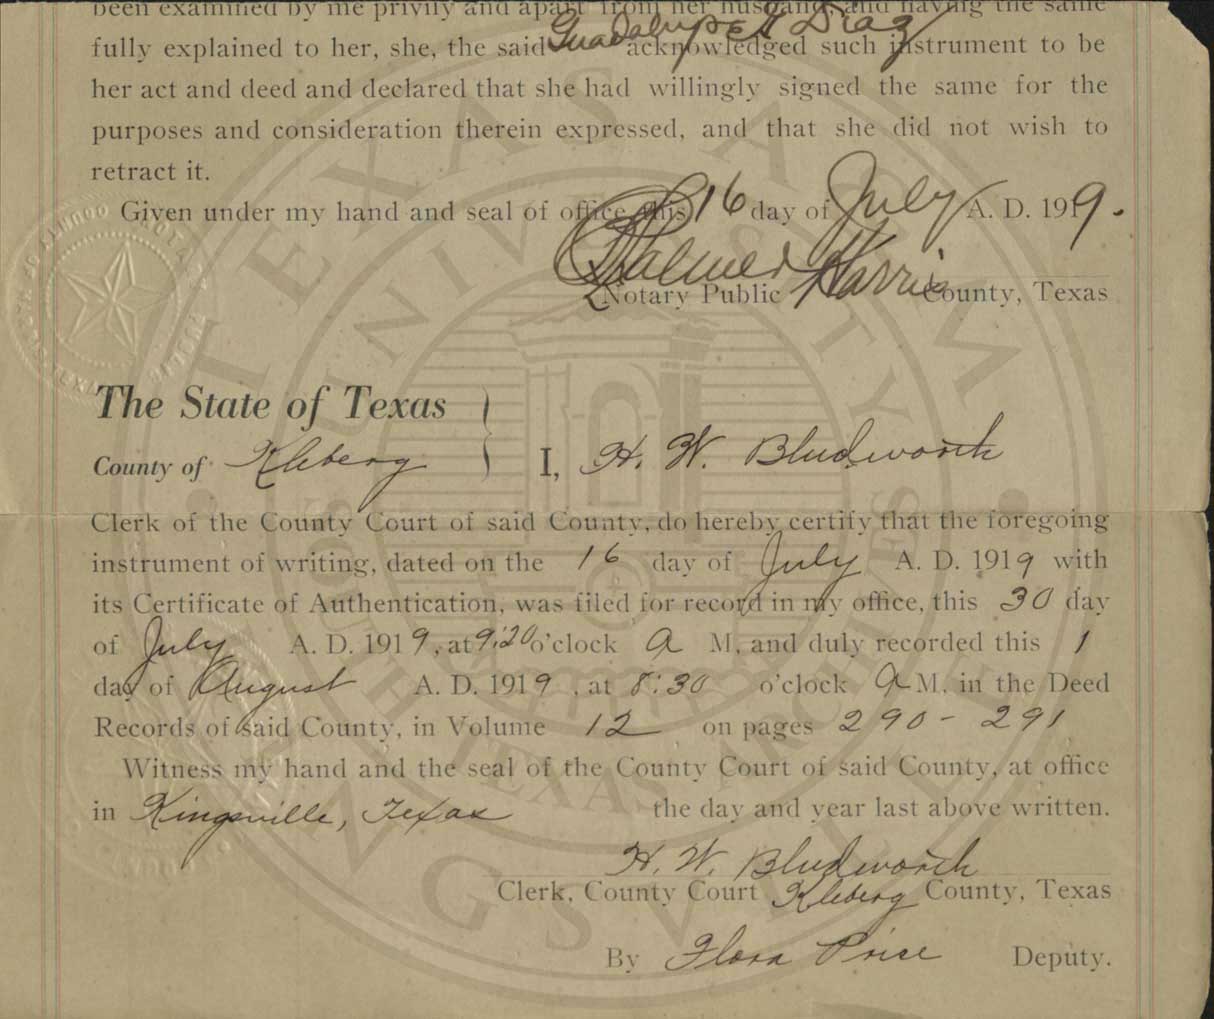 been examined by me privily and apart from her husband, and having the same
fully explained to her, she, the said Guadalupe R Diaz acknowledged such instrument to be
her act and deed and declared that she had willingly signed the same for the
purposes and consideration therein expressed, and that she did not wish to
retract it.
Given under my hand and seal of office this 16 day of July A. D. 1919.
Palmer Harris
Notary Public County, Texas
The State of Texas
County of Kleberg } I, H. W. Bludworth
Clerk of the County Court of said County, do hereby certify that the foregoing
instrument of writing, dated on the 16 day of July A. D. 1919 with
its Certificate of Authentication, was filed for record in my office, this 30 day
of July A. D. 1919, at 9:20 o'clock A M, and duly recorded this 1
day of August A. D. 1919, at 8:30 o'clock A M, in the Deed
Records of said County, in Volume 12 on pages 290 - 291
Witness my hand and the seal of the County Court of said County, at office
in Kingsville, Texas the day and year last above written.
H. W. Bludworth
Clerk, County Court Kleberg County, Texas
By Flora Price Deputy.
TEXAS A&M
UNIVERSITY
KINGSVILLE
SOUTH TEXAS ARCHIVES